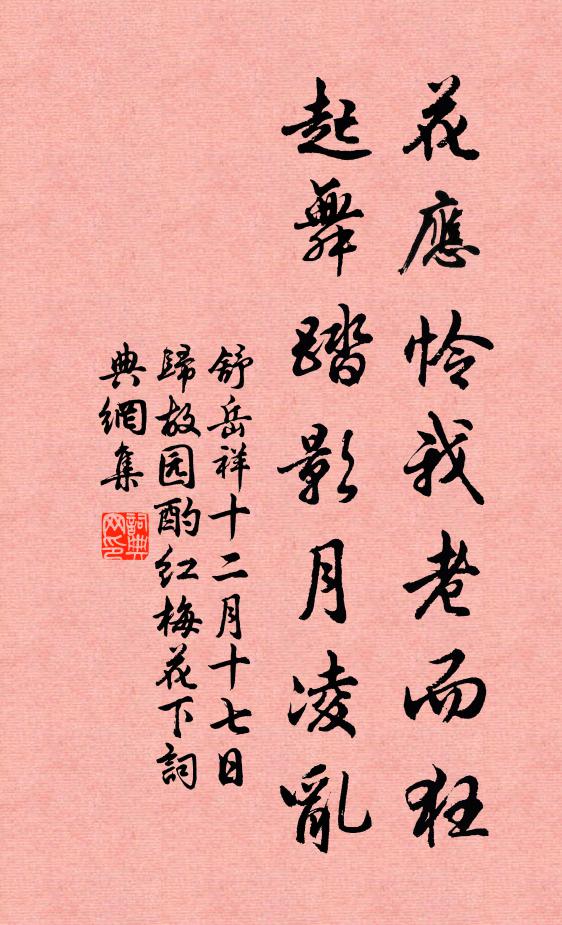 花應怜我老而狂
起舞踏影月凌亂
舒岳祥十二月十七日
歸故园酌红梅花下詞
典網集
詞典
网印